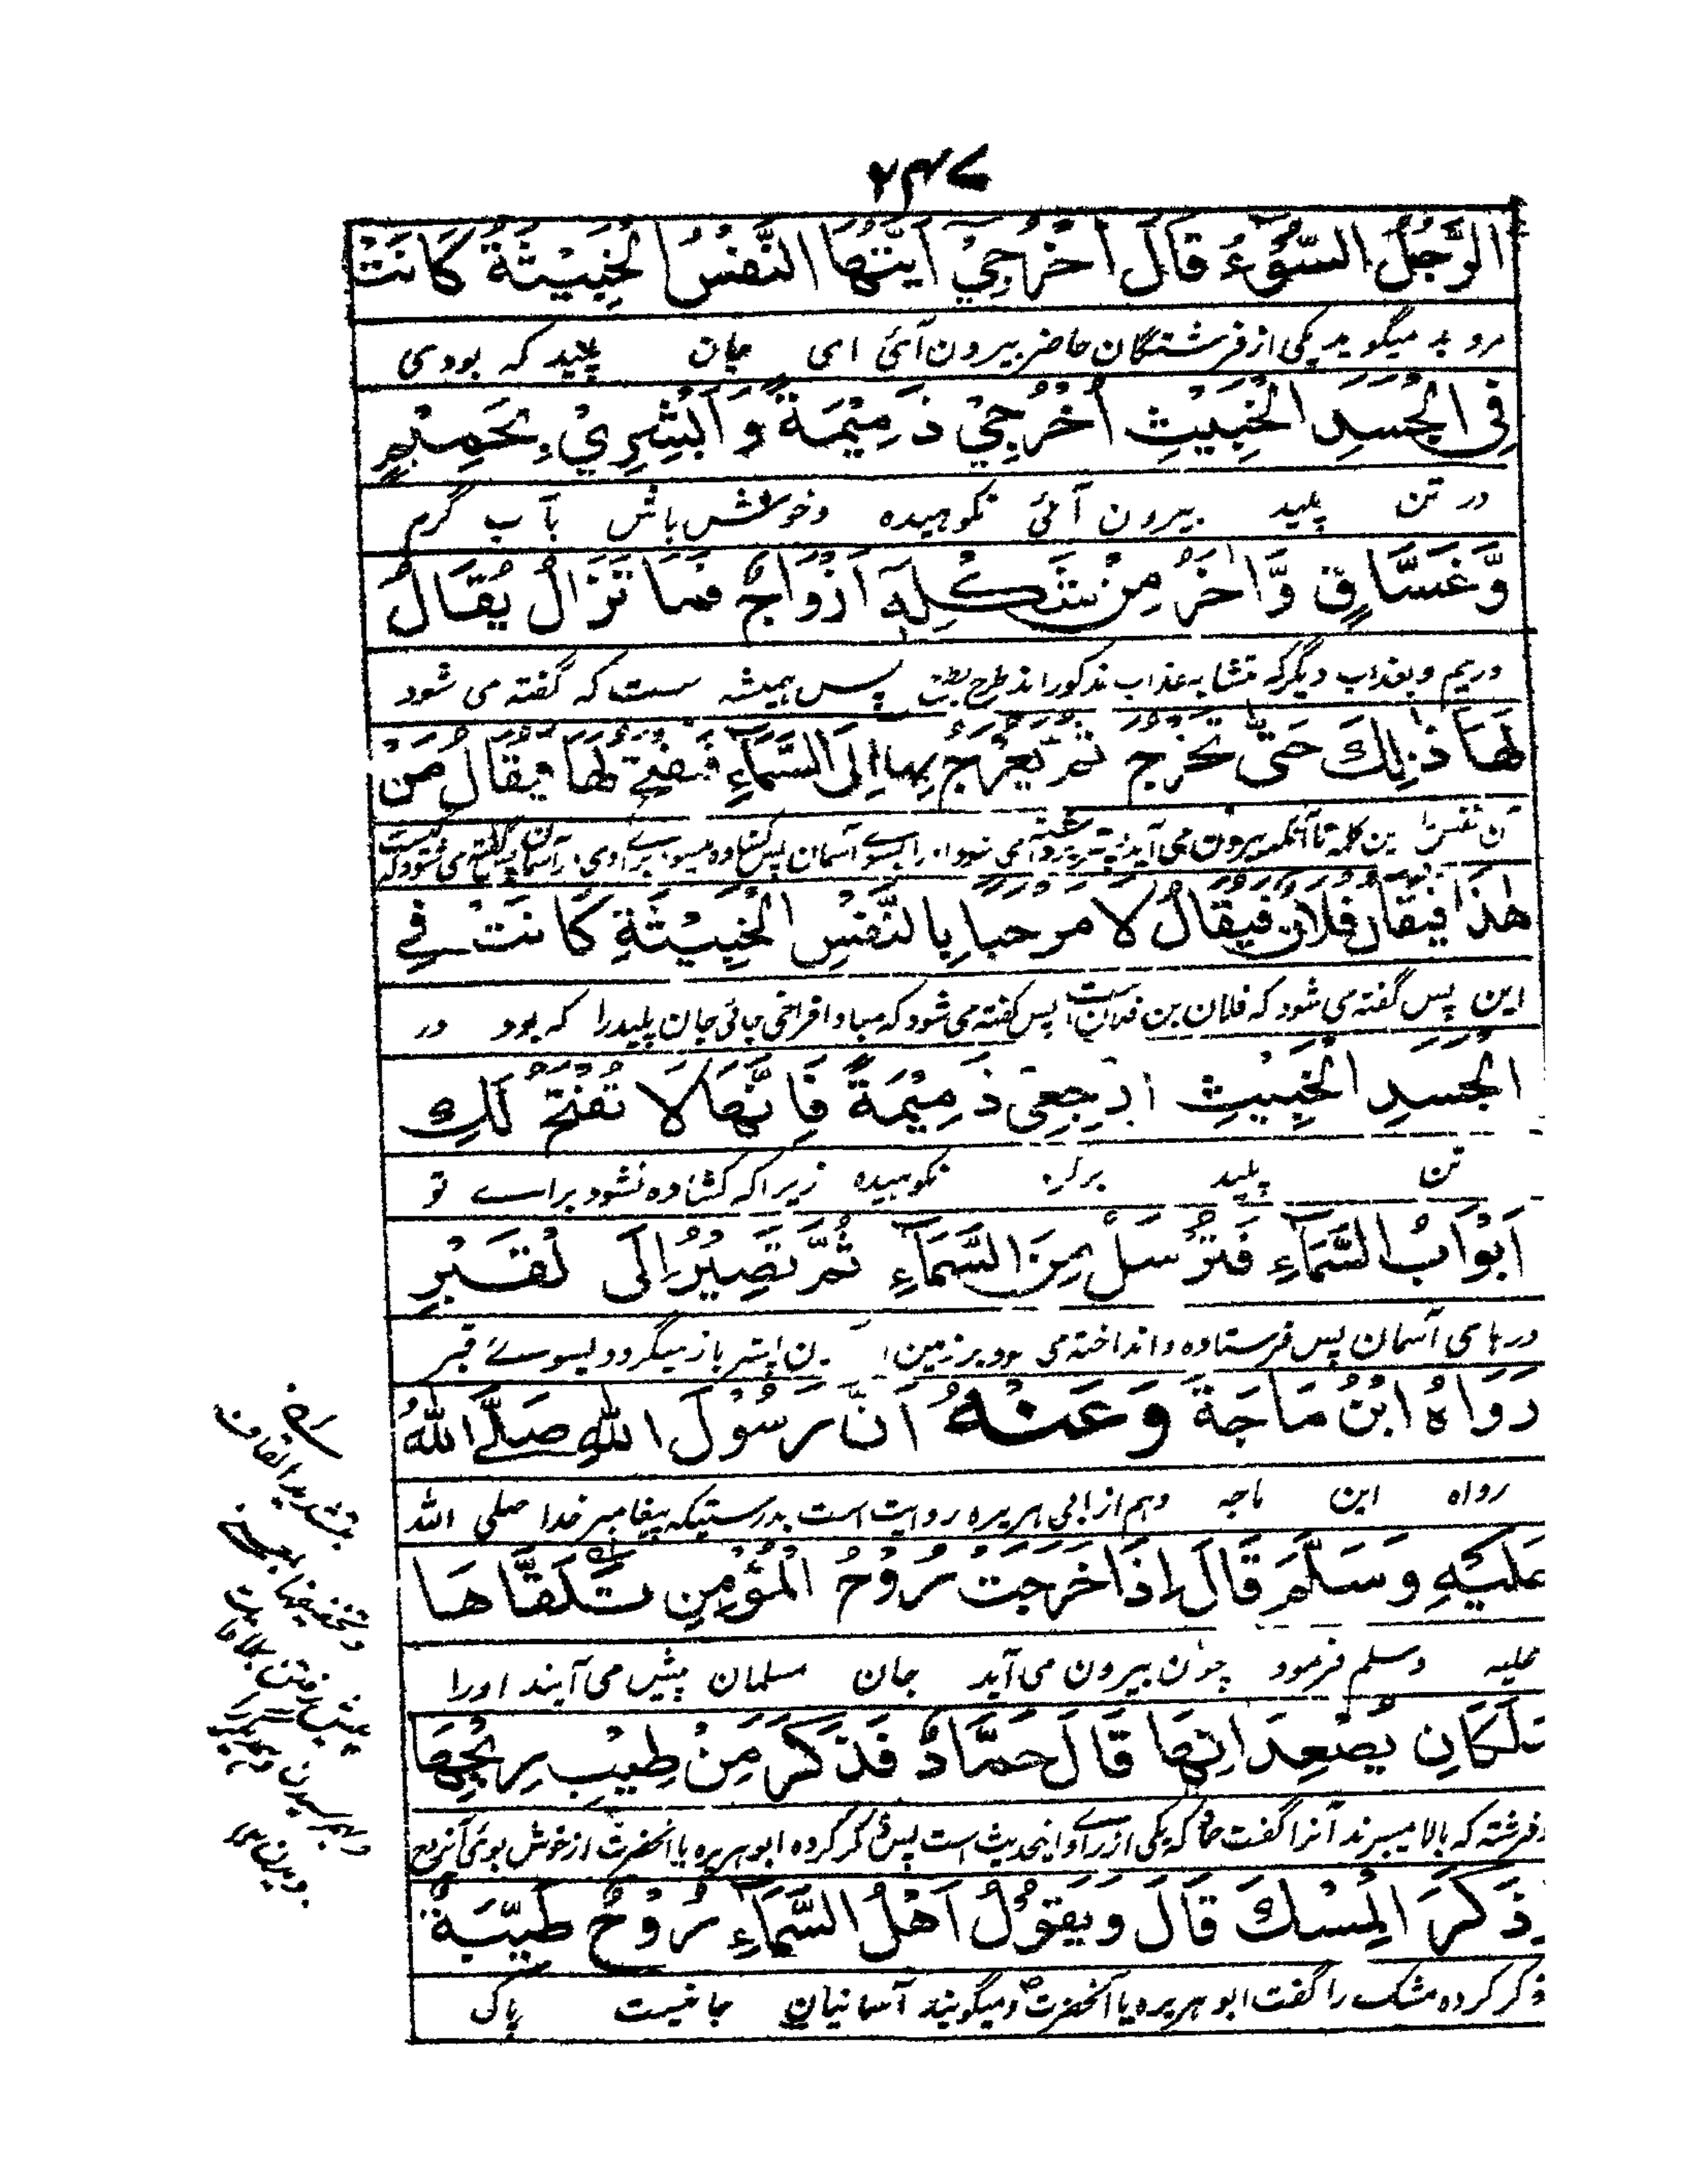 ۲۴۷
الرَّجُلُ السُّوْءُ قَالَ اُخْرُجِيْ اَيَّتُهَا النَّفْسُ الْخَبِيْثَةُ كَانَتْ
مرد بد میگوید یکی از فرشتگان حاضر بیرون آئی ای جان پلید که بودی
فِى الْجَسَدِ الْخَبِيْثِ اُخْرُجِيْ ذَمِيْمَةً وَّاَبْشِرِيْ بِحَمِيْمٍ
در تن پلید بیرون آئی نکوهیده و خوش باش بآب گرم
وَّغَسَّاقٍ وَّاٰخَرُ مِنْ شَكْلِهٖ اَزْوَاجٌ فَمَا تَزَالُ يُقَالُ
وریم و بعذاب دیگر که متشابه عذاب مذکور اند پس همیشه ست که گفته می شود
لَهَا ذٰلِكَ حَتّٰى تَخْرُجَ ثُمَّ يُعْرَجُ بِهَا اِلَى السَّمَآءِ فَيُفْتَحُ لَهَا فَيُقَالُ مَنْ
این کلمه تا آنکه بیرون می آید
هٰذَا فَيُقَالُ فُلَانٌ فَيُقَالُ لَا مَرْحَبًا بِالنَّفْسِ الْخَبِيْثَةِ كَانَتْ فِى
این پس گفته می شود که فلان بن فلان است پس گفته می شود که مبادا فراخی جائی جان پلید را که بود در
الْجَسَدِ الْخَبِيْثِ ارْجِعِى ذَمِيْمَةً فَاِنَّهَا لَا تُفْتَحُ لَكِ
تن پلید برگرد نکوهیده زیرا که کشاده نشود براے تو
اَبْوَابُ السَّمَآءِ فَتُرْسَلُ مِنَ السَّمَآءِ ثُمَّ تَصِيْرُ اِلَى الْقَبْرِ
درهای آسمان پس فرستاده و انداخته می بر زمین باز میگردد بسوے قبر
رَوَاهُ ابْنُ مَاجَةَ وَعَنْهُ اَنَّ رَسُوْلَ اللهِ صَلَّى اللهُ
رواه ابن ماجه وهم از ابی هریره روایت است بدرستیکه پیغامبر خدا صلی الله
عَلَيْهِ وَسَلَّمَ قَالَ اِذَا خَرَجَتْ رُوْحُ الْمُؤْمِنِ تَلَقَّاهَا
علیه وسلم فرمود چون بیرون می آید جان مسلمان پیش می آیند اورا
مَلَكَانِ يُصْعِدَانِهَا قَالَ حَمَّادٌ فَذَكَرَ مِنْ طِيْبِ رِيْحِهَا
فرشته که بالا میبرند آنرا گفت حماد که یکی از این حدیث است پس ذکر کرده ابوهریره یا آنحضرت از خوش بوئی آنروح
وَذَكَرَ الْمِسْكَ قَالَ وَيَقُوْلُ اَهْلُ السَّمَآءِ رُوْحٌ طَيِّبَةٌ
ذکر کرده مشک را گفت ابوهریره یا آنحضرت ومیگویند آسمانیان جانیست پاکی
بتشدید القاف